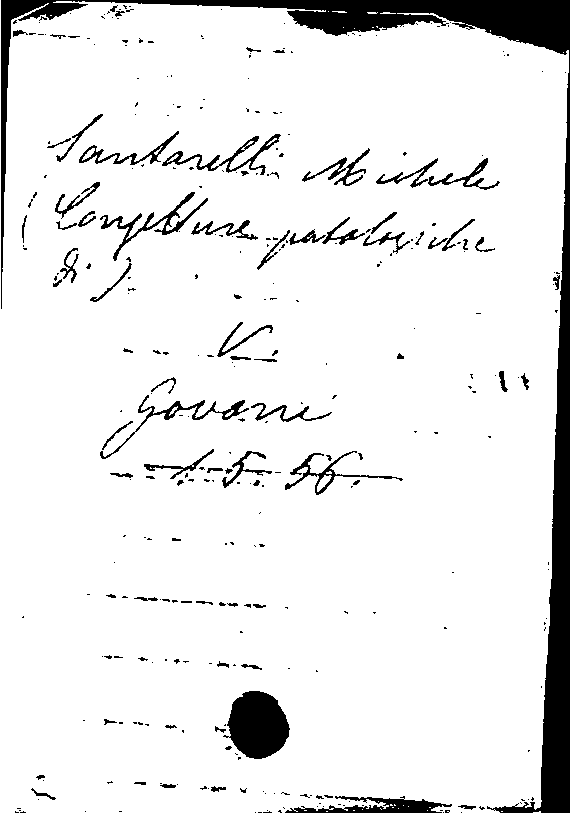 Santarelli Michele
(Congetture patologiche
di)
V.
Govoni
1. 5. 56.